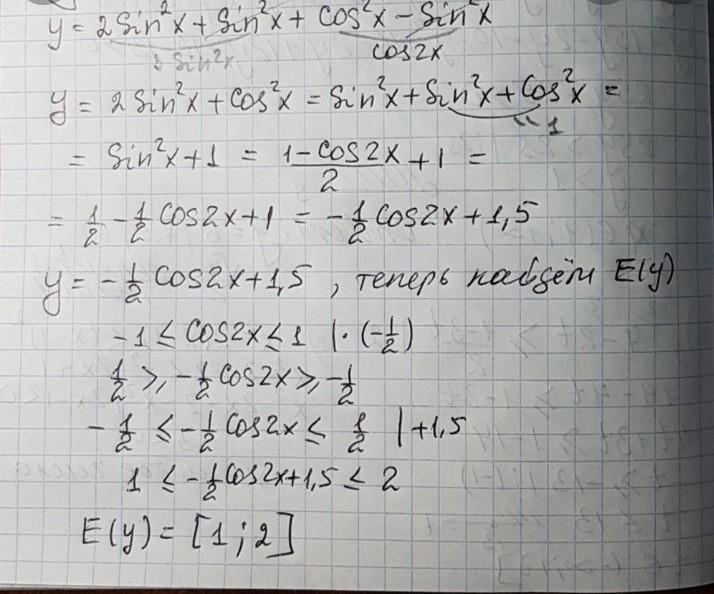 y = 2 Sin²x + Sin²x + Cos²x - Sin²x
Cos2x
y = 2 Sin²x + Cos²x = Sin²x + Sin²x + Cos²x =
"1
= Sin²x + 1 = (1 - Cos2x)/2 + 1 =
= 1/2 - 1/2 Cos2x + 1 = - 1/2 Cos2x + 1,5
y = - 1/2 Cos2x + 1,5 , теперь найдём E(y)
-1 ≤ Cos2x ≤ 1 | · (-1/2)
1/2 ≥ - 1/2 Cos2x ≥ - 1/2
- 1/2 ≤ - 1/2 Cos2x ≤ 1/2 | +1,5
1 ≤ - 1/2 Cos2x + 1,5 ≤ 2
E(y) = [1 ; 2]